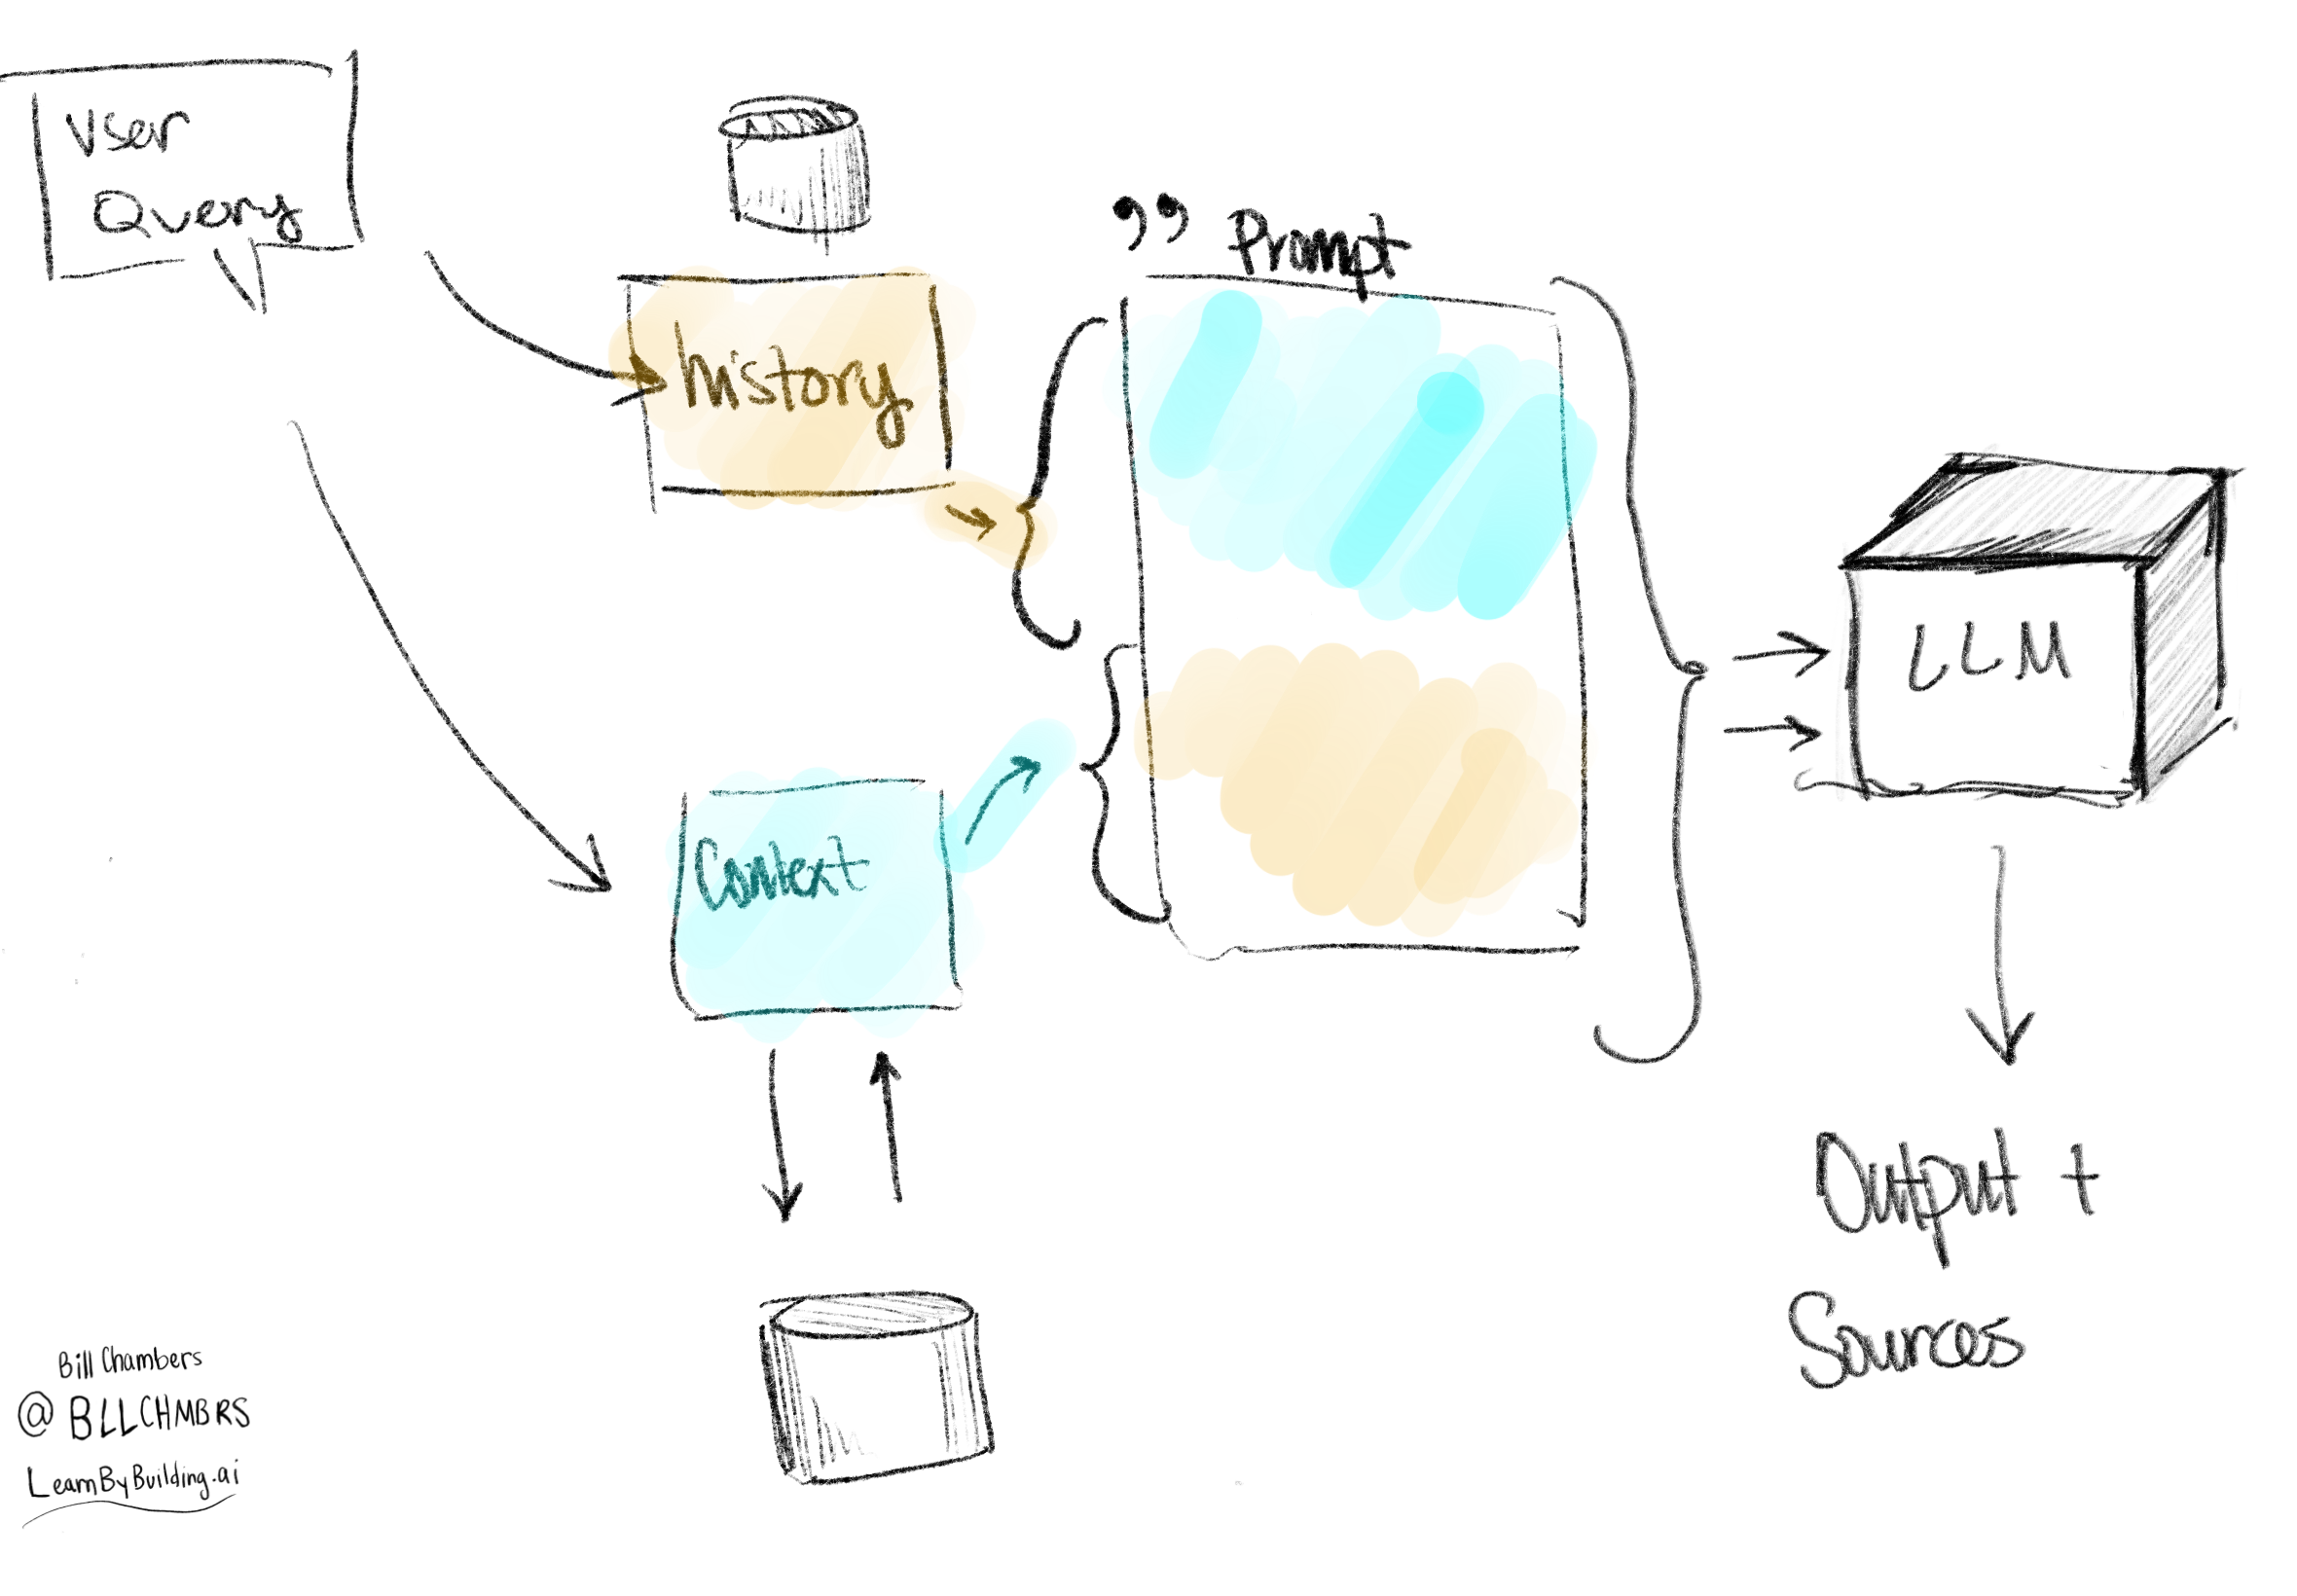 User
Query
history
" Prompt
Context
LLM
Output +
Sources
Bill Chambers
@BLLCHMBRS
LearnByBuilding.ai